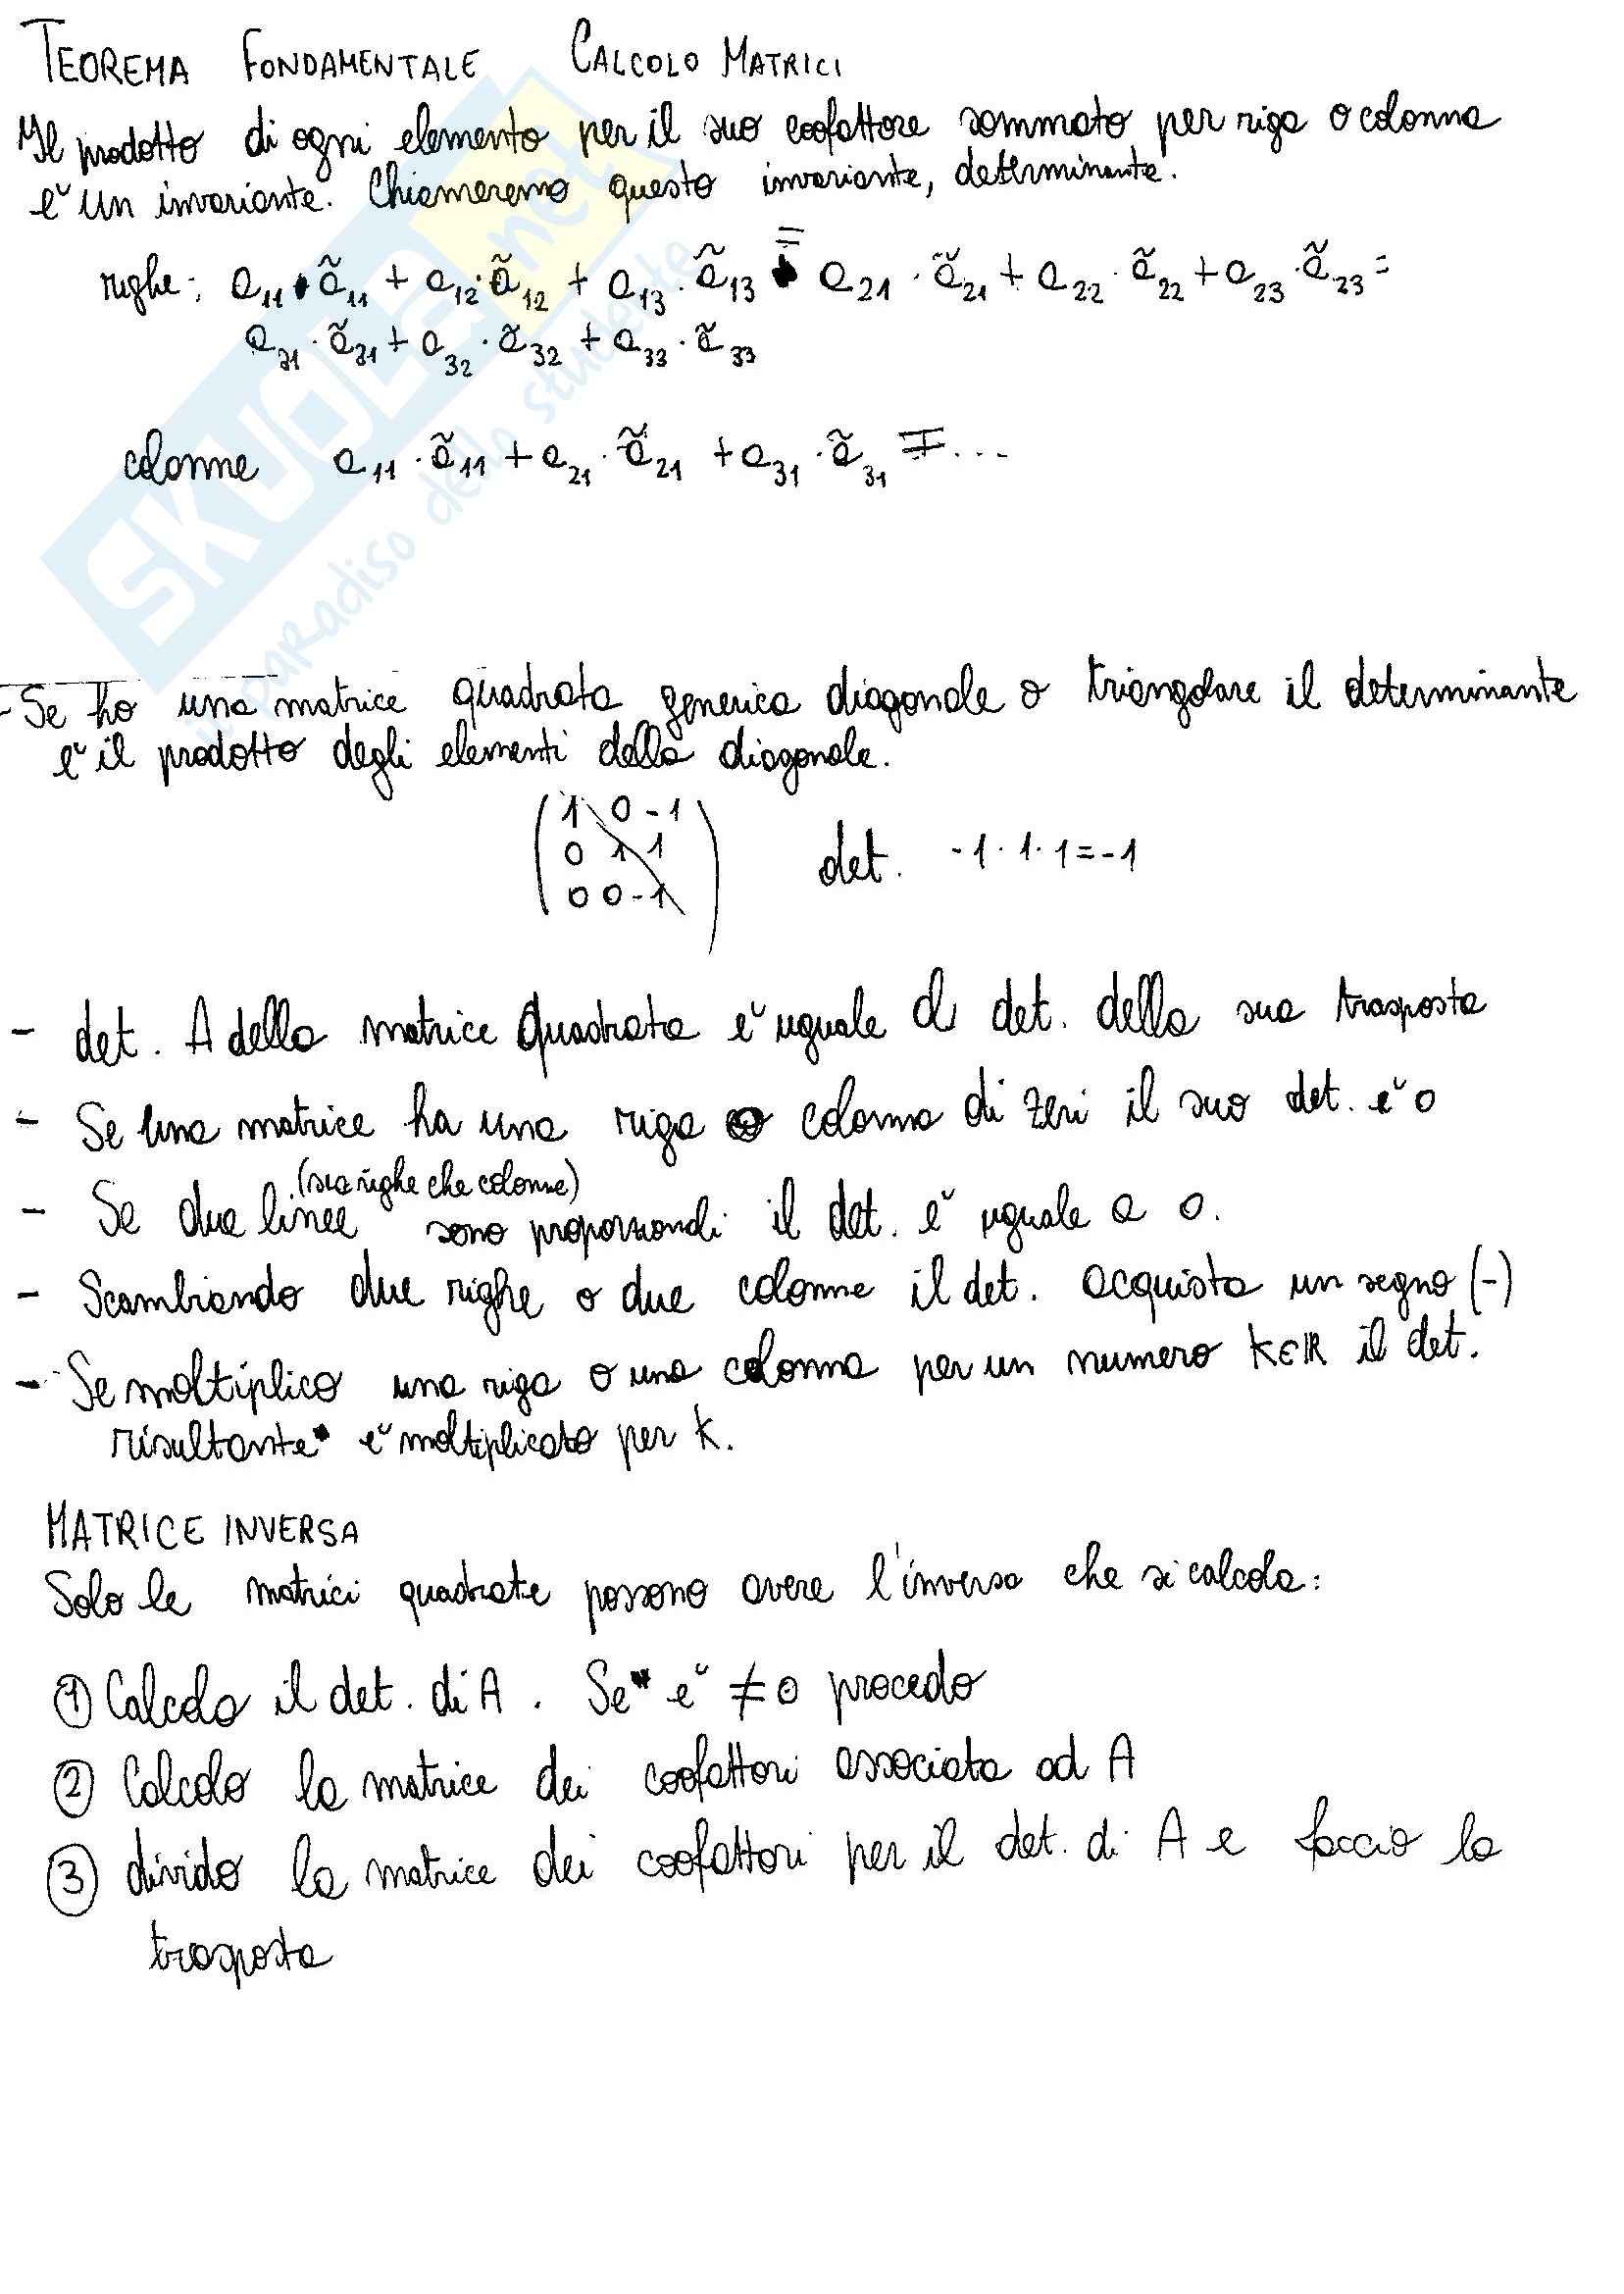 TEOREMA FONDAMENTALE CALCOLO MATRICI
Il prodotto di ogni elemento per il suo coofattore sommato per riga o colonna
è un invariante. Chiameremo questo invariante, determinante.
righe: a₁₁ · ã₁₁ + a₁₂ · ã₁₂ + a₁₃ · ã₁₃ = a₂₁ · ã₂₁ + a₂₂ · ã₂₂ + a₂₃ · ã₂₃ =
a₃₁ · ã₃₁ + a₃₂ · ã₃₂ + a₃₃ · ã₃₃
colonne a₁₁ · ã₁₁ + a₂₁ · ã₂₁ + a₃₁ · ã₃₁ = ...
SKUOLA.net
il paradiso dello studente
- Se ho una matrice quadrata generica diagonale o triangolare il determinante
è il prodotto degli elementi della diagonale.
1 0 -1
0 1 1
0 0 -1
det. -1 · 1 · 1 = -1
- det. A della matrice quadrata è uguale al det. della sua trasposta
- Se una matrice ha una riga o colonna di zeri il suo det. è 0
- Se due linee (sia righe che colonne) sono proporzionali il det. è uguale a 0.
- Scambiando due righe o due colonne il det. acquista un segno (-)
- Se moltiplico una riga o una colonna per un numero k∈ℝ il det.
risultante è moltiplicato per k.
MATRICE INVERSA
Solo le matrici quadrate possono avere l'inversa che si calcola:
① Calcolo il det. di A. Se è ≠ 0 procedo
② Calcolo la matrice dei coofattori associata ad A
③ divido la matrice dei coofattori per il det. di A e faccio la
trasposta